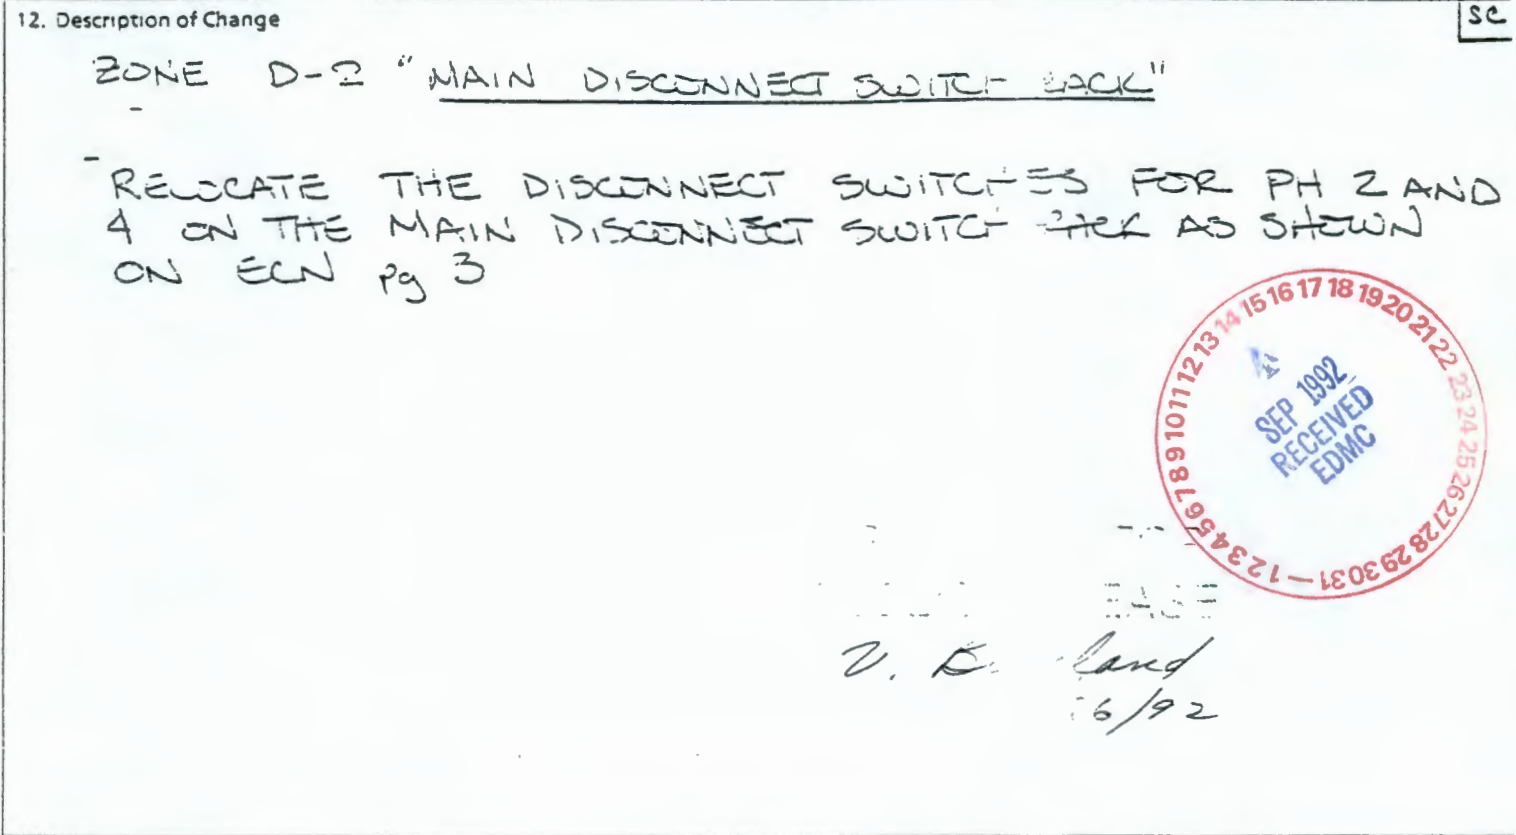 12. Description of Change
SC
ZONE D-2 "MAIN DISCONNECT SWITCH RACK"
RELOCATE THE DISCONNECT SWITCHES FOR PH 2 AND
4 ON THE MAIN DISCONNECT SWITCH RACK AS SHOWN
ON ECN pg 3
1 2 3 4 5 6 7 8 9 10 11 12 13 14 15 16 17 18 19 20 21 22 23 24 25 26 27 28 29 30 31
SEP 1992
RECEIVED
EDMC
6/92